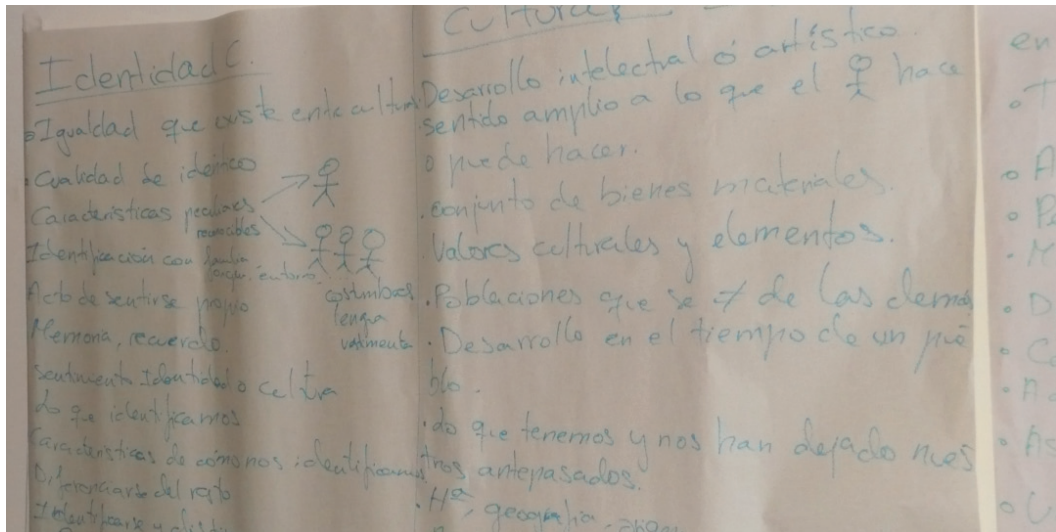 Identidad C.
Igualdad que existe entre cultura
Cualidad de idéntico
Características peculiares
reconocibles
Identificación con familia
entorno
Acto de sentirse propio
costumbres
lengua
vestimenta
Memoria, recuerdo.
sentimiento Identidad o cultura
Lo que identificamos
Características de cómo nos identificamos
Diferenciarse del resto
Identificarse y
Cultura
Desarrollo intelectual ó artístico.
sentido amplio a lo que el hace
o puede hacer.
conjunto de bienes materiales.
Valores culturales y elementos.
Poblaciones que se ≠ de las demás
Desarrollo en el tiempo de un pue
blo.
Lo que tenemos y nos han dejado nues
tros antepasados.
Hª, geografía,
en